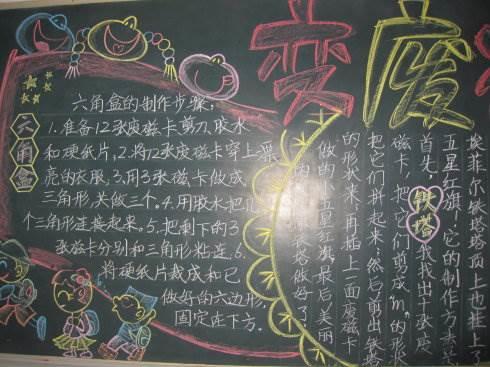 变废
六角盒
六角盒的制作步骤：
1.准备12张废磁卡剪刀、胶水
和硬纸片，2.将12张废磁卡穿上漂
亮的衣服，3.用3张磁卡做成
三角形，共做三个。4.用胶水把几
个三角形连接起来。5.把剩下的3
张磁卡分别和三角形粘连。6.
将硬纸片裁成和已
做好的六边形，
固定在下方。
铁塔
埃菲尔铁塔塔顶上也挂上了
五星红旗！它的制作方法是
首先，我找出十张废
磁卡，把它们剪成"m"的形状
把它们拼起来，然后剪出铁塔
的形状来，再插上一面废磁卡
做的小五星红旗最后美丽
铁塔做好了